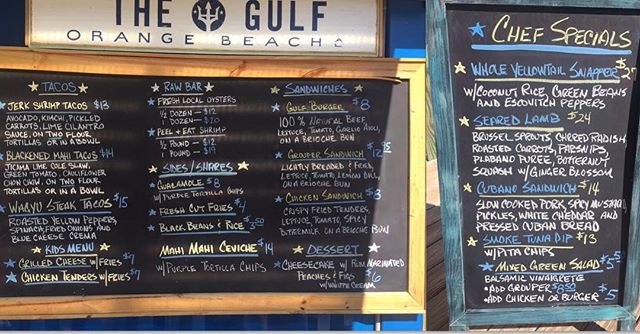 THE GULF
ORANGE BEACH
TACOS
JERK SHRIMP TACOS $13
AVOCADO, KIMCHI, PICKLED
CARROTS, LIME CILANTRO
SAUCE ON TWO FLOUR
TORTILLAS OR IN A BOWL
BLACKENED MAHI TACOS $14
JICAMA LIME COLE SLAW,
GREEN TOMATO, CAULIFLOWER
CHOW CHOW, ON TWO FLOUR
TORTILLAS OR IN A BOWL
WAGYU STEAK TACOS $15
ROASTED YELLOW PEPPERS,
SPINACH, FRIED ONIONS AND
BLUE CHEESE CREMA
KIDS MENU
GRILLED CHEESE W/FRIES $9
CHICKEN TENDERS W/FRIES $9
RAW BAR
FRESH LOCAL OYSTERS
1/2 DOZEN - $12
1 DOZEN - $20
PEEL + EAT SHRIMP
1/2 POUND - $12
1 POUND - $19
SIDES/SHARES
GUACAMOLE $8
W/ PURPLE TORTILLA CHIPS
FRESH CUT FRIES $4
BLACK BEANS & RICE $3.50
MAHI MAHI CEVICHE $14
W/PURPLE TORTILLA CHIPS
SANDWICHES
GULF BURGER $8
100% NATURAL BEEF
LETTUCE, TOMATO, GARLIC AIOLI,
ON A BRIOCHE BUN
GROUPER SANDWICH $12
LIGHTLY BREADED & FRIED,
LETTUCE, TOMATO, LEMON
ON A BRIOCHE BUN
CHICKEN SANDWICH $8
CRISPY FRIED TENDERS,
LETTUCE, TOMATO, SPICY
BUTTERMILK ON A BRIOCHE BUN
DESSERT
CHEESECAKE W/ RUM MARINATED
PEACHES & FIGS $6
W/WHIPPED CREAM
CHEF SPECIALS
WHOLE YELLOWTAIL SNAPPER
W/COCONUT RICE, GREEN BEANS
AND ESCOVITCH PEPPERS
SEARED LAMB $24
BRUSSEL SPROUTS, CHARRED RADISH,
ROASTED CARROTS, PARSNIPS
POBLANO PUREE, BUTTERNUT
SQUASH W/GINGER BLOSSOM
CUBANO SANDWICH $14
SLOW COOKED PORK, SPICY MUSTARD
PICKLES, WHITE CHEDDAR AND
PRESSED CUBAN BREAD
SMOKE TUNA DIP $13
W/PITA CHIPS
MIXED GREEN SALAD $5
BALSAMIC VINAIGRETTE
• ADD GROUPER $8.50
• ADD CHICKEN OR BURGER $5